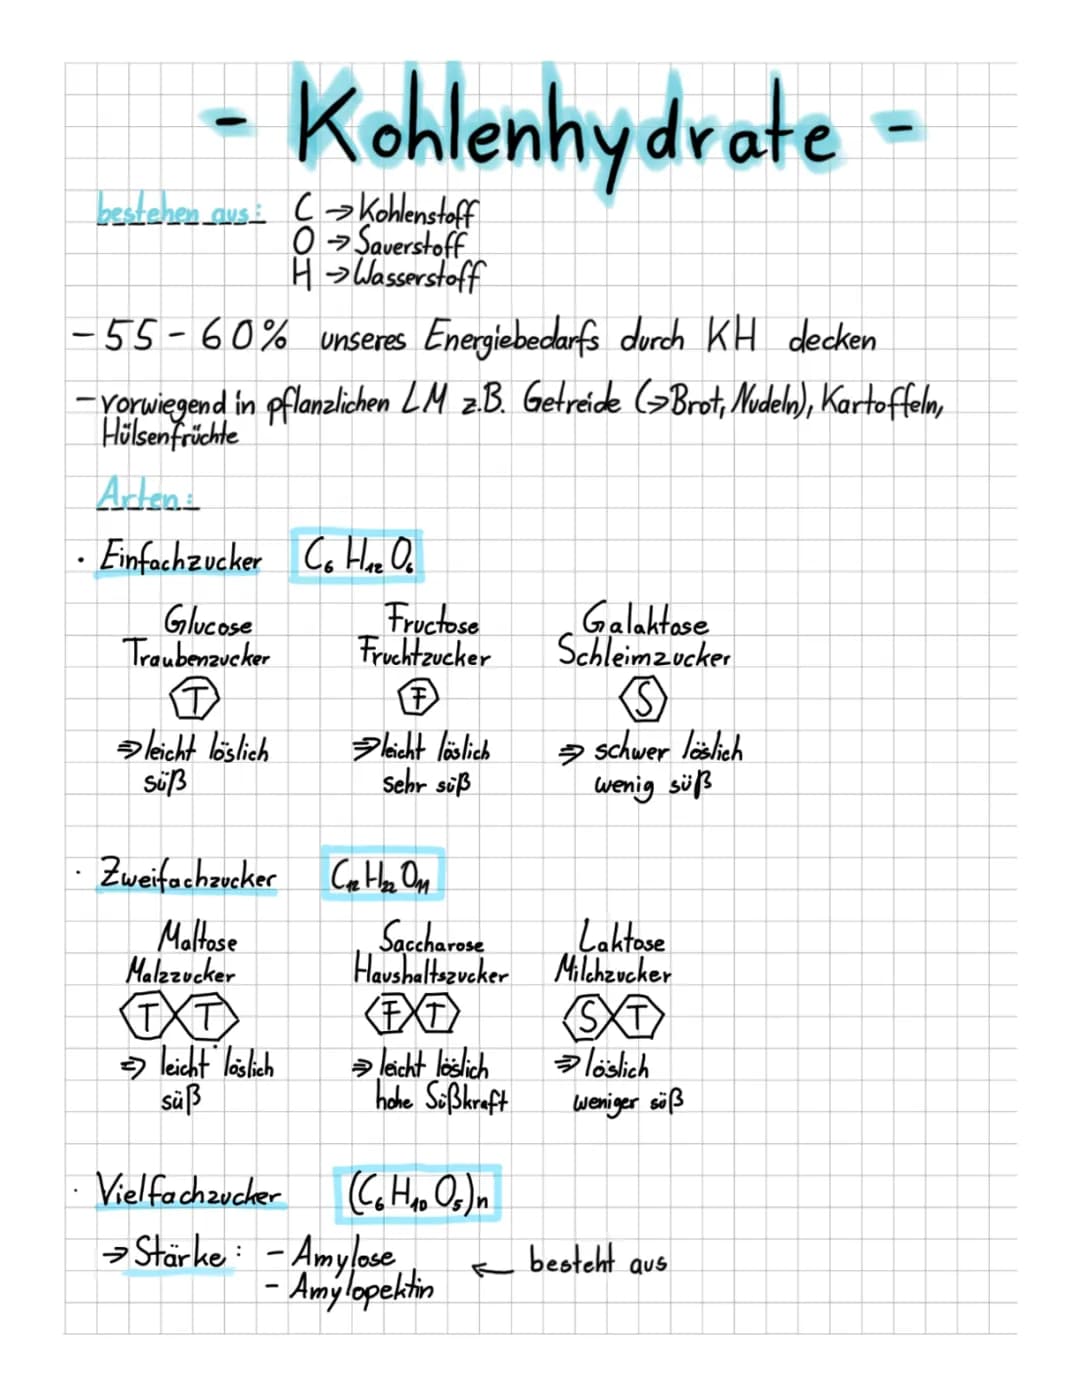 - Kohlenhydrate -
bestehen aus: C → Kohlenstoff
O → Sauerstoff
H → Wasserstoff
- 55 - 60% unseres Energiebedarfs durch KH decken
- vorwiegend in pflanzlichen LM z.B. Getreide (→Brot, Nudeln), Kartoffeln,
Hülsenfrüchte
Arten:
· Einfachzucker C₆ H₁₂ O₆
Glucose Fructose Galaktose
Traubenzucker Fruchtzucker Schleimzucker
T F S
⇒ leicht löslich ⇒ leicht löslich ⇒ schwer löslich
süß sehr süß wenig süß
· Zweifachzucker C₁₂ H₂₂ O₁₁
Maltose Saccharose Laktose
Malzzucker Haushaltszucker Milchzucker
T T F T S T
⇒ leicht löslich ⇒ leicht löslich ⇒ löslich
süß hohe Süßkraft weniger süß
· Vielfachzucker (C₆ H₁₀ O₅)n
→ Stärke: - Amylose ← besteht aus
- Amylopektin